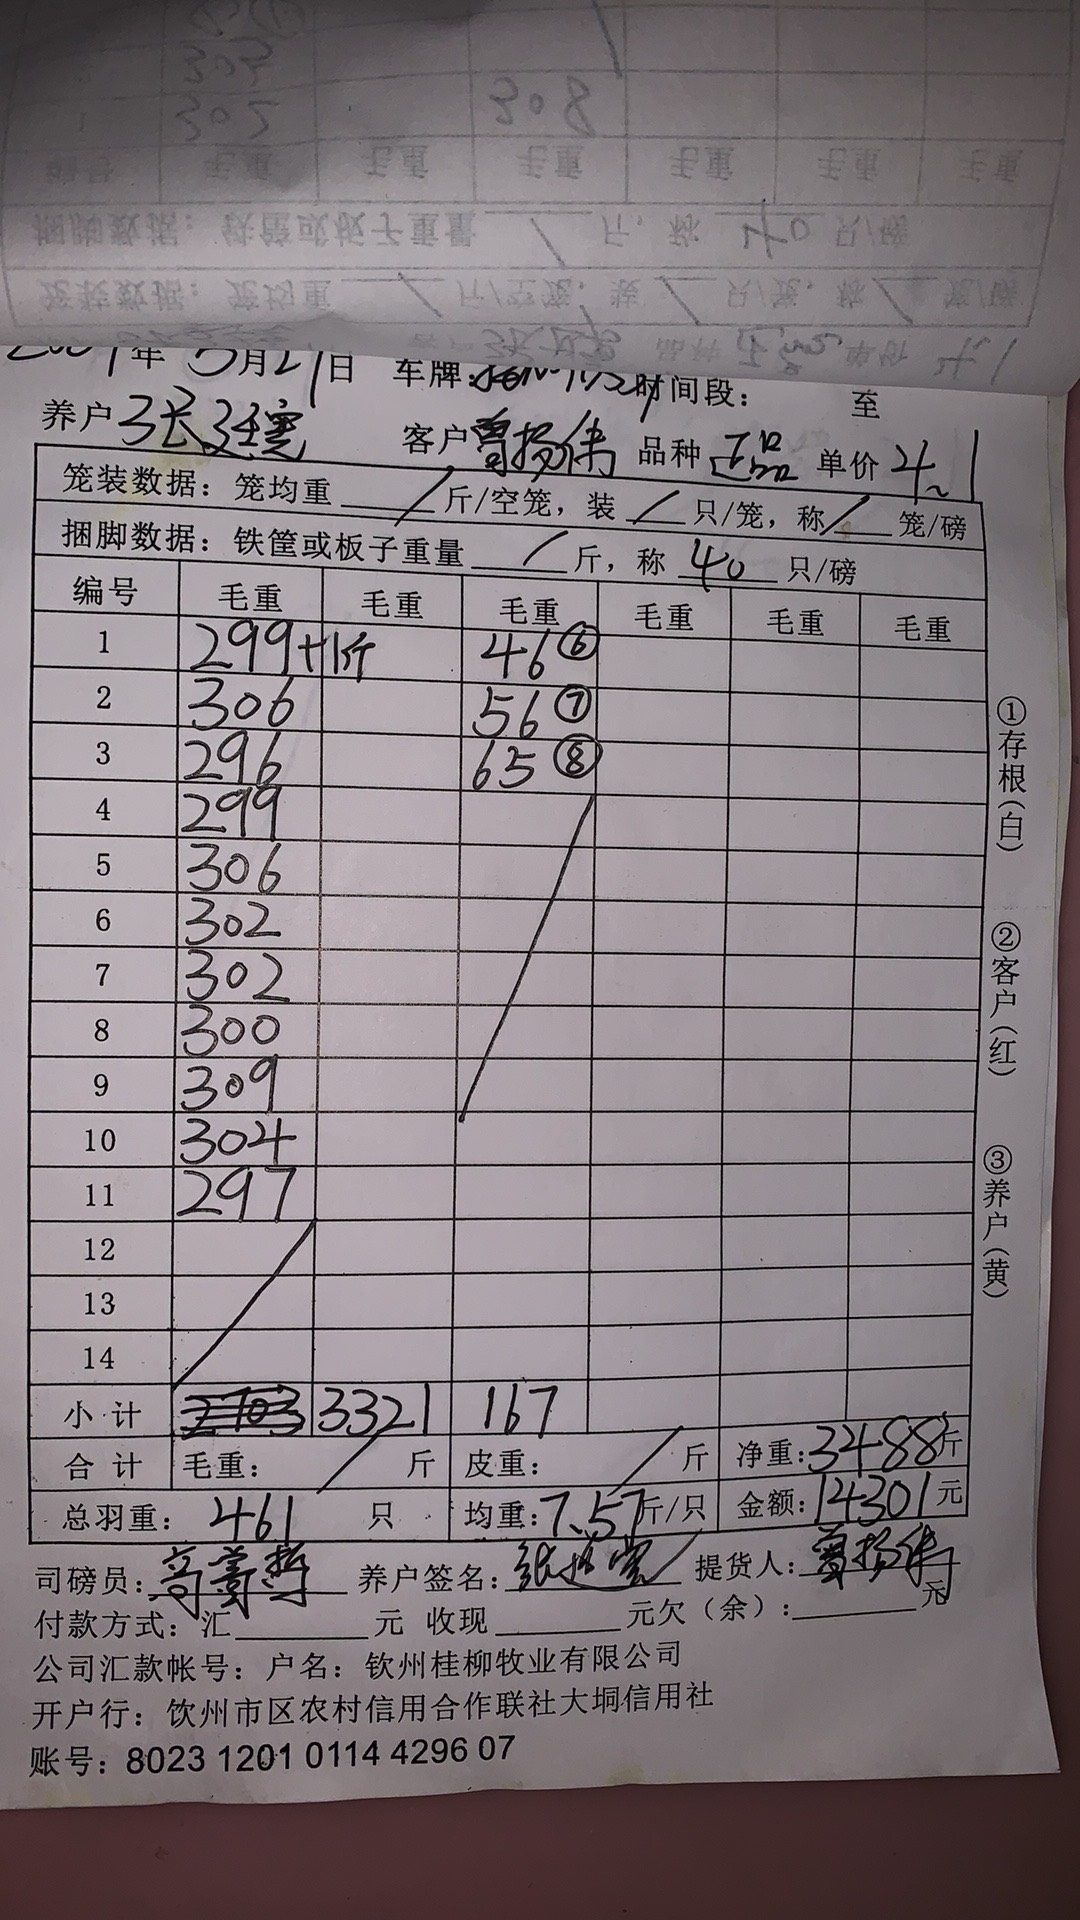 308
年 月 日 车牌: 时间段: 至
养户 张廷宽 客户 曾扬伟 品种 正品 单价 4.1
笼装数据: 笼均重 / 斤/空笼, 装 / 只/笼, 称 / 笼/磅
捆脚数据: 铁筐或板子重量 / 斤, 称 40 只/磅
编号 毛重 毛重 毛重 毛重 毛重 毛重
1 299+1斤 46⑥
2 306 56⑦
3 296 65⑧
4 299
5 306
6 302
7 302
8 300
9 309
10 304
11 297
12
13
14
小计 3321 167
合计 毛重: / 斤 皮重: / 斤 净重: 3488斤
总羽重: 461 只 均重: 7.57斤/只 金额: 14301元
司磅员: 养户签名: 张廷宽 提货人: 曾扬伟
付款方式: 汇 元 收现 元欠(余): 元
公司汇款帐号: 户名: 钦州桂柳牧业有限公司
开户行: 饮州市区农村信用合作联社大垌信用社
账号: 8023 1201 0114 4296 07
①存根(白)
②客户(红)
③养户(黄)